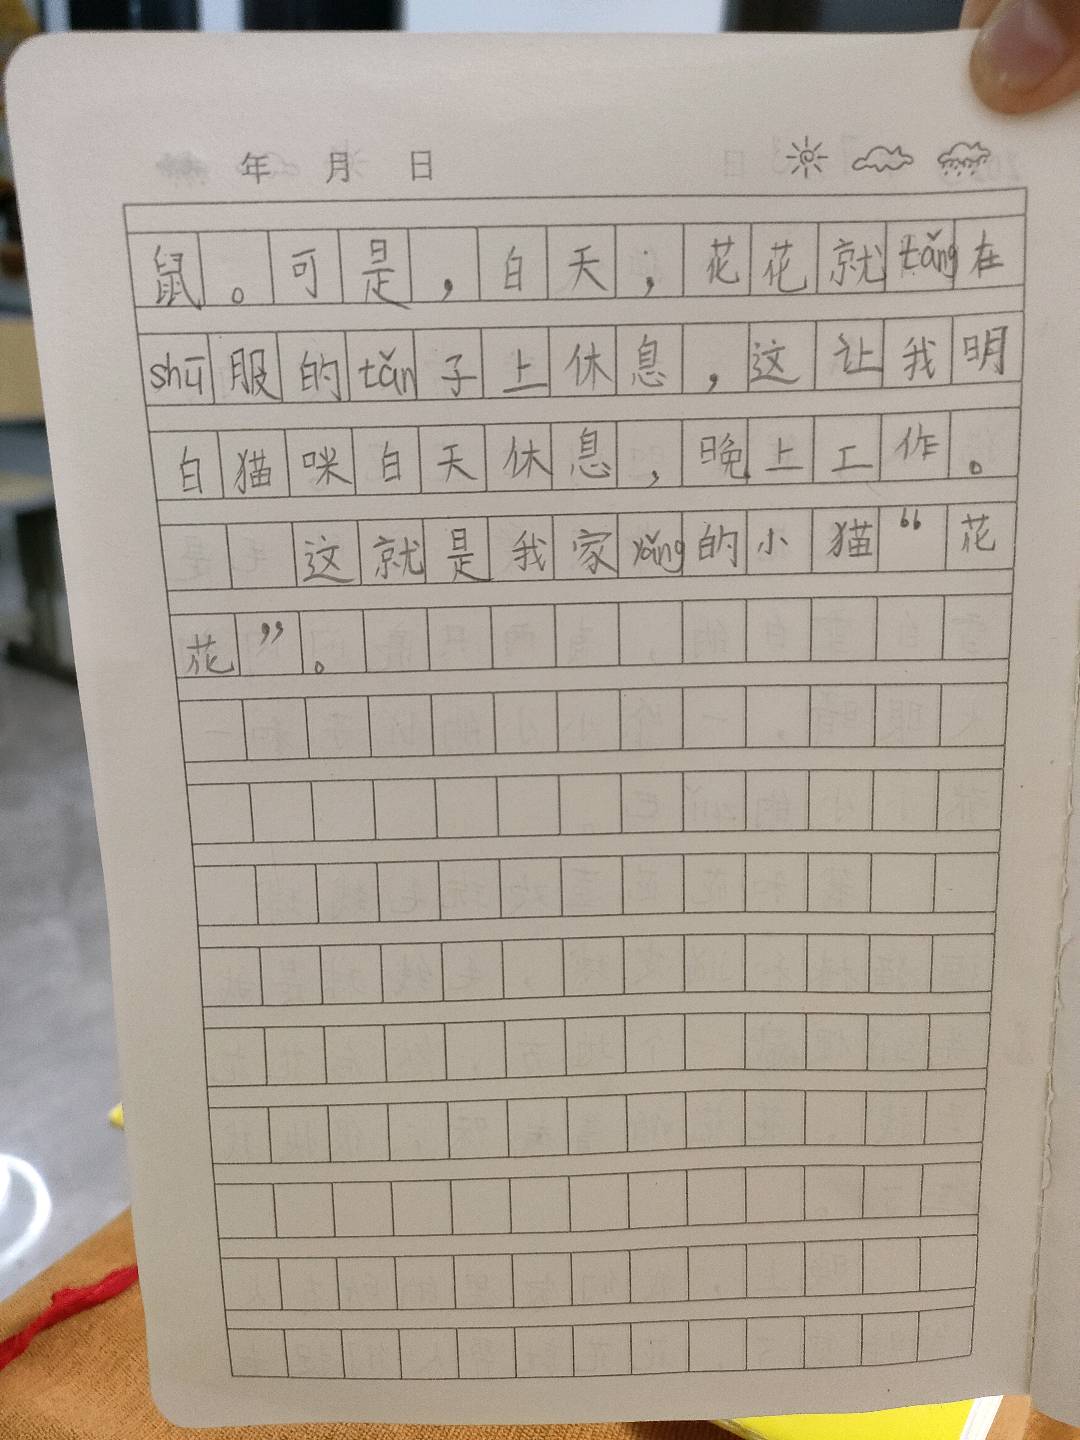 年 月 日
鼠。可是，白天，花花就tǎng在
shū服的tǎn子上休息，这让我明
白猫咪白天休息，晚上工作。
这就是我家yǎng的小猫“花
花”。